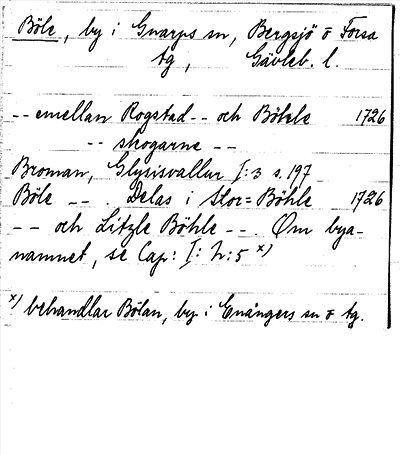 Böle, by i Gnarps sn, Bergsjö o Forsa
tg, Gävleb. l.
-- emellan Rogstad -- och Böhle 1726
-- skogarne --
Broman, Glysisvallur I:3 s. 197
Böle -- . Delas i Stor=Böhle 1726
-- och Litzle Böhle -- . Om bya-
namnet, se Cap: I: h: 5 x)
x) behandlar Bölan, by i Enångers sn o tg.